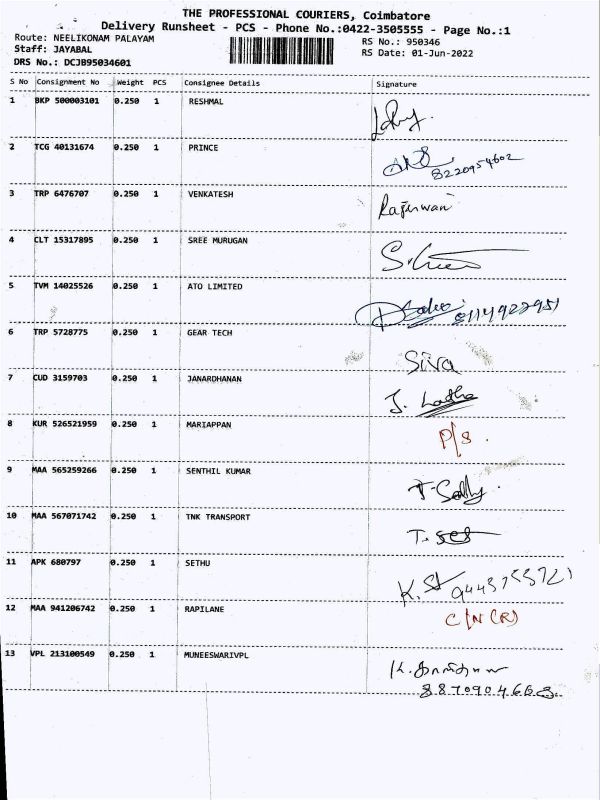 THE PROFESSIONAL COURIERS, Coimbatore
Delivery Runsheet - PCS - Phone No.:0422-3505555 - Page No.:1
Route: NEELIKONAM PALAYAM RS No.: 950346
Staff: JAYABAL RS Date: 01-Jun-2022
DRS No.: DCJB95034601
S No Consignment No Weight PCS Consignee Details Signature
1 BKP 500003101 0.250 1 RESHMAL
2 TCG 40131674 0.250 1 PRINCE 8220954602
3 TRP 6476707 0.250 1 VENKATESH
4 CLT 15317895 0.250 1 SREE MURUGAN
5 TVM 14025526 0.250 1 ATO LIMITED
6 TRP 5728775 0.250 1 GEAR TECH Siva
7 CUD 3159703 0.250 1 JANARDHANAN
8 KUR 526521959 0.250 1 MARIAPPAN P/S.
9 MAA 565259266 0.250 1 SENTHIL KUMAR
10 MAA 567071742 0.250 1 TNK TRANSPORT
11 APK 680797 0.250 1 SETHU
12 MAA 941206742 0.250 1 RAPILANE C/N (R)
13 VPL 213100549 0.250 1 MUNEESWARIVPL